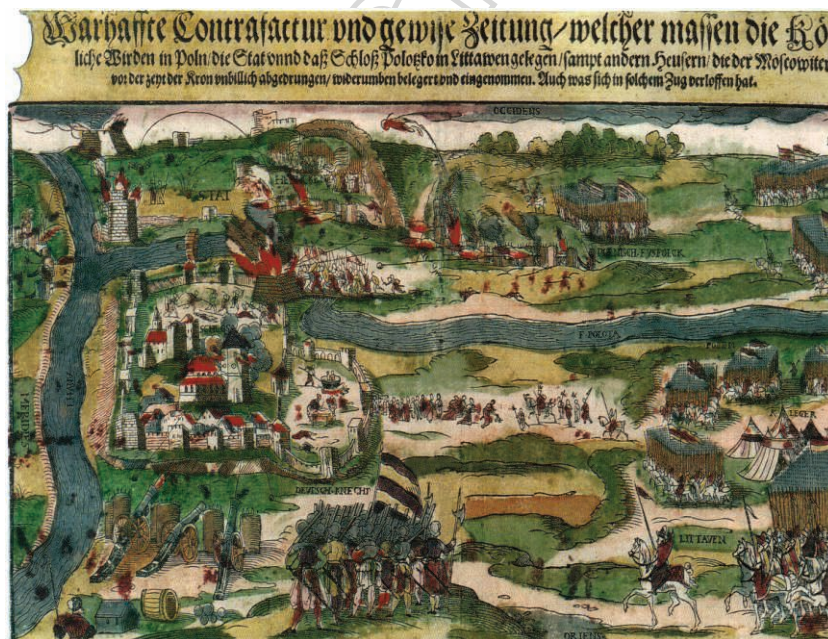 Warhaffte Contrafactur vnd gewise Zeitung/ welcher massen die Kö
liche Wirden in Poln/ die Stat vnnd daß Schloß Polotzko in Littawen gelegen/ sampt andern Heusern/ die der Moscowiter
vor der zeyt der Kron vnbillich abgedrungen/ widerumben belegert vnd eingenommen. Auch was sich in solchem Zug verloffen hat.
OCCIDENS
STAT
MERIDIES
LEGER
DEVTSCH KNECHT
LITTAVEN
ORIENS